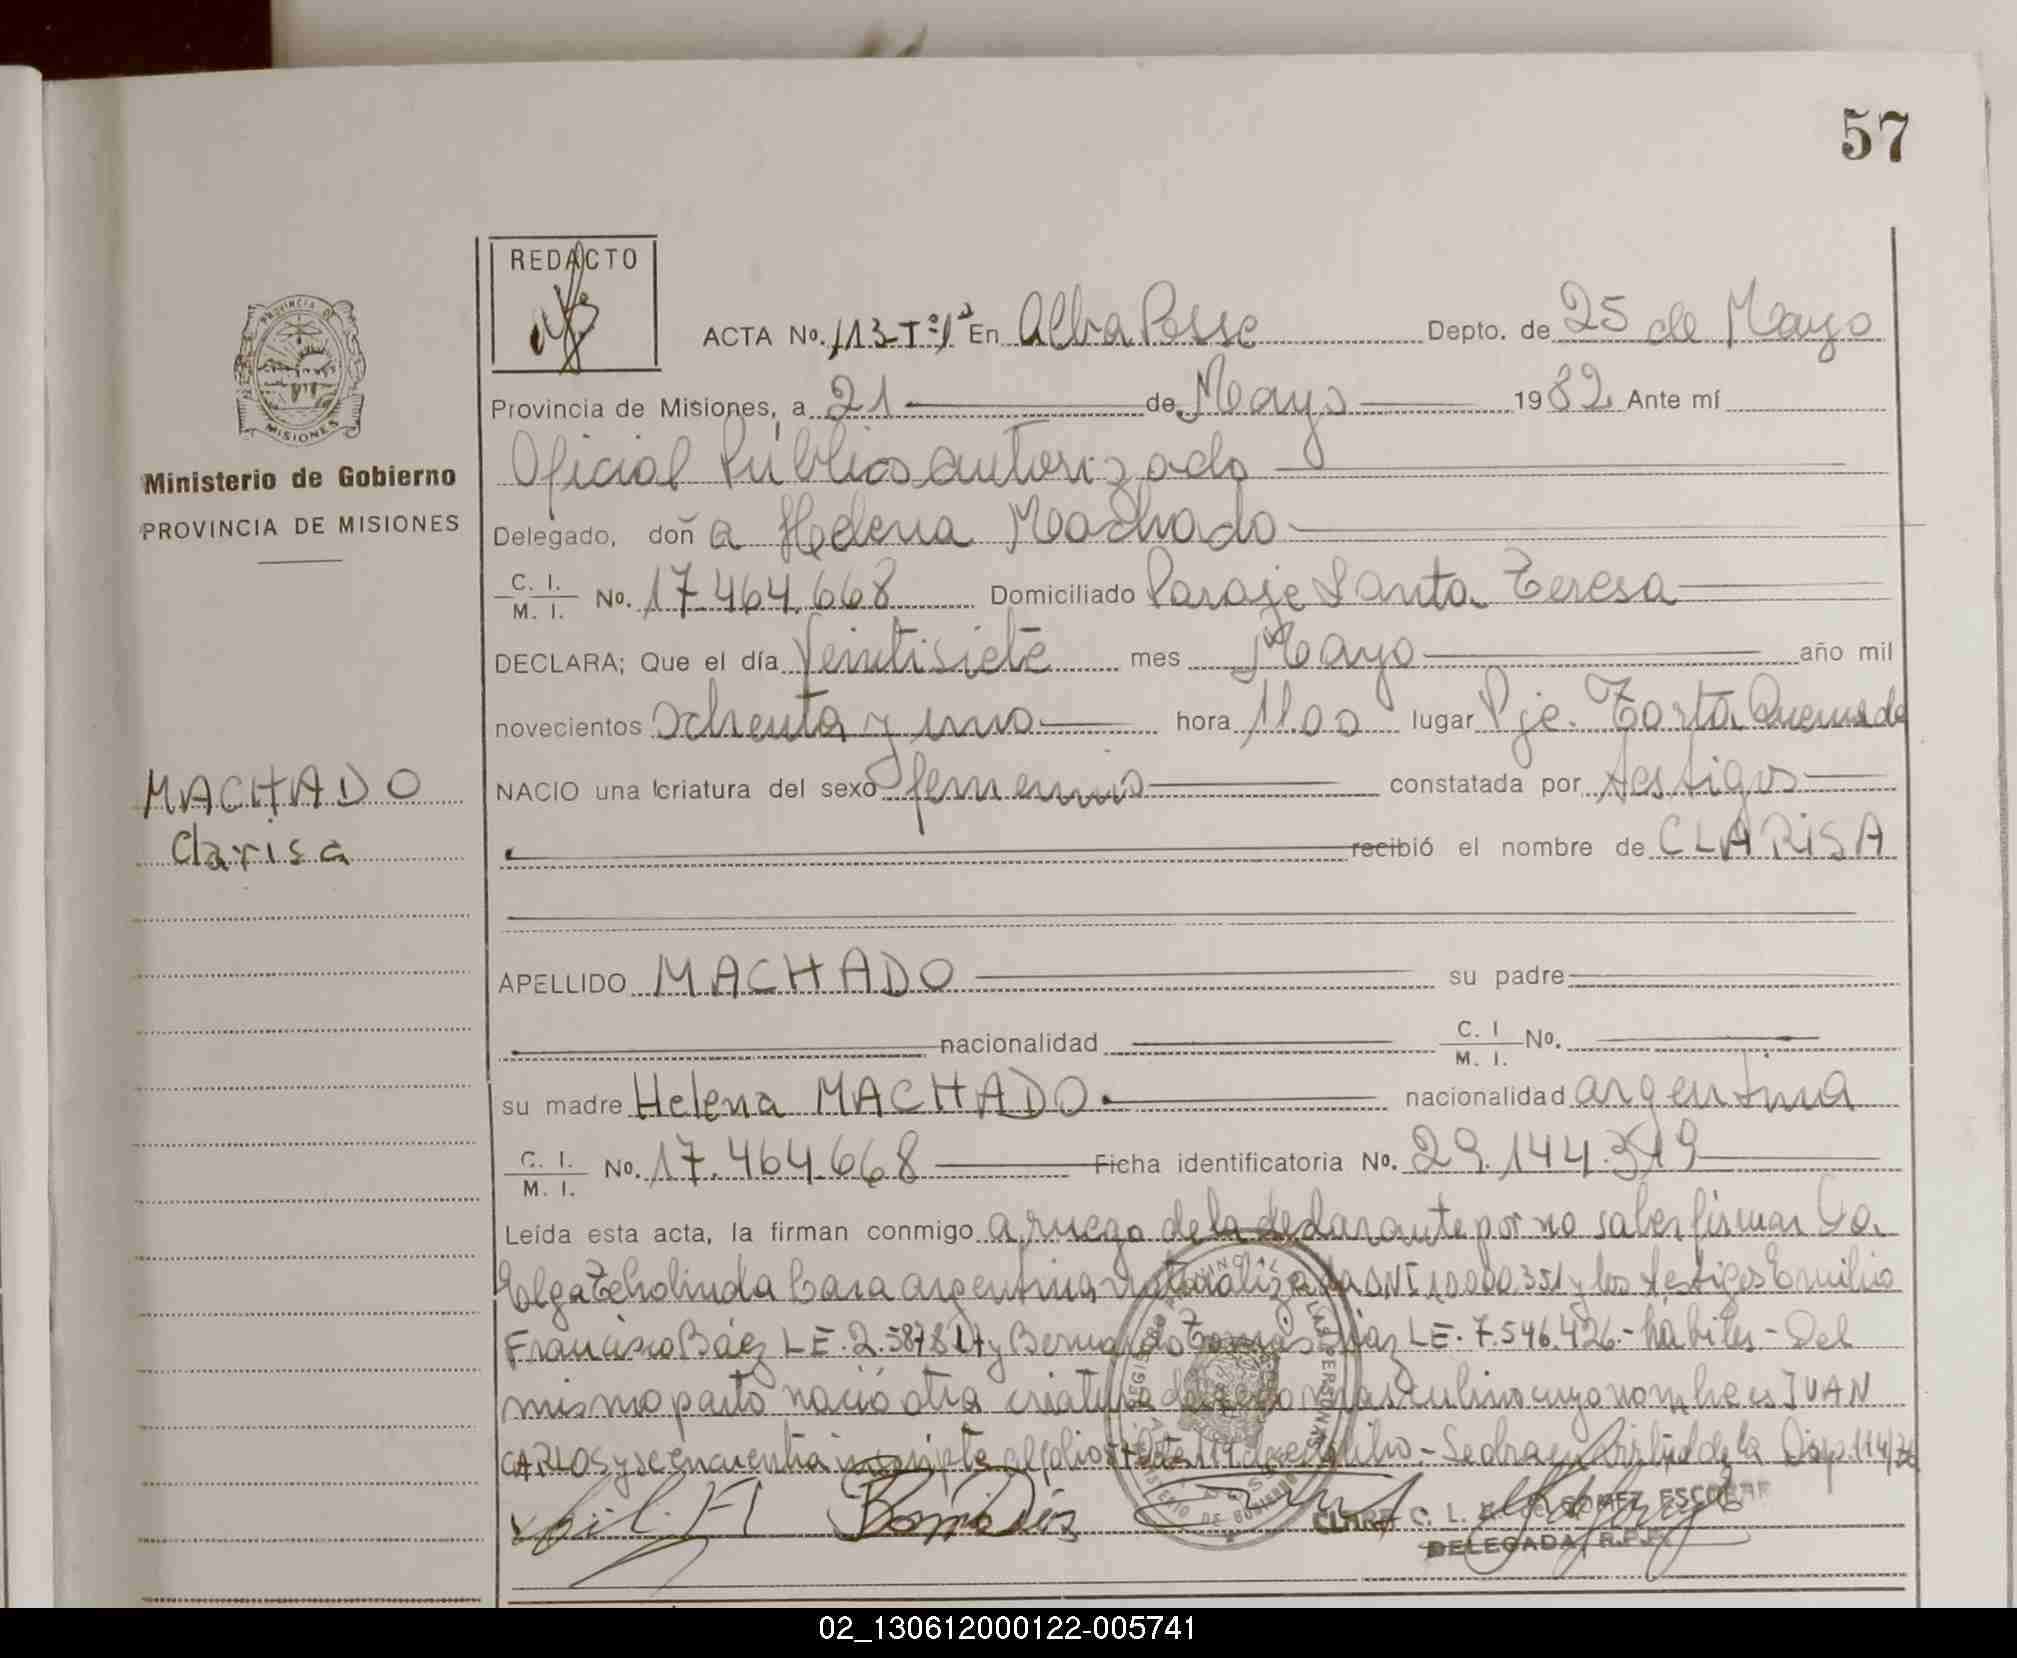 57
REDACTO
ACTA No. 113-Tº1º En Alba Posse Depto. de 25 de Mayo
Provincia de Misiones, a 21 de Mayo 1982 Ante mí
Oficial Público autorizado
Delegado, doñ a Helena Machado
C. I. / M. I. No. 17.464.668 Domiciliado Paraje Santa Teresa
DECLARA; Que el día Veintisiete mes Mayo año mil
novecientos ochenta y uno hora 11.00 lugar Pje. Torta Quemada
NACIO una criatura del sexo femenino constatada por testigos
recibió el nombre de CLARISA
APELLIDO MACHADO su padre
nacionalidad C. I / M. I. No.
su madre Helena MACHADO nacionalidad argentina
C. I. / M. I. No. 17.464.668 Ficha identificatoria No. 29.144.319
Leída esta acta, la firman conmigo a ruego de la declarante por no saber firmar
argentina naturalizada DNI y los testigos Emilio
Francisco Báez LE. y Bernardo Tomás Díaz LE. 7.546.426.- hábiles - Del
mismo parto nació otra criatura de sexo masculino cuyo nombre es IVAN
CARLOS y se encuentra inscripta al folio - Se obra en virtud de la Disp. 114/
CLARA C. L. GOMEZ ESCOBAR
DELEGADA R.P.P.
PROVINCIA DE
MISIONES
Ministerio de Gobierno
PROVINCIA DE MISIONES
MACHADO
Clarisa
02_130612000122-005741